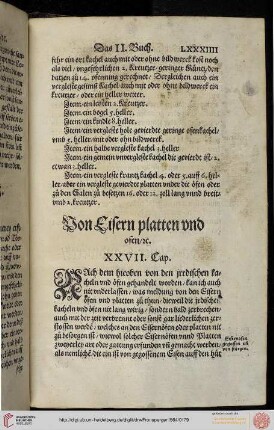 Das II. Buch. LXXXIIII
sehr ein ert kachel auch mit oder ohne bildwerck kost noch
als viel / ongesehrlichen 2. Kreutzer / geringer
batzen zů 14. pfenning gerechnet / Dergleichen auch ein
vergleste gesims Kachel auch mit oder ohne bildwerck ein
kreutzer / oder ein heller weiter.
Item ein leisten 2. Kreutzer.
Item ein bogel 7. heller.
Item ein 8. heller.
Item ein vergleste hole gevierdte geringe ofenkachel /
umb 5. heller mit oder ohn bildwerck.
Item ein halbe vergleste kachel 3. heller.
Item ein gemein unvergleste kachel die gevierdt ist / 2.
etwan 3. heller.
Item ein vergleste krantz kachel 4. oder 5. auff 6. hel-
ler aber ein vergleste gevierdte platten under die öfen oder
zů den Gålen zů besetzen 16. oder 12. zoll lang unnd breit /
umb 2. kreutzer.
Von Eisern platten vnd
öfen / ꝛc.
XXVII. Cap.
NAch dem hieoben von den jrdischen ka-
cheln und öfen gehandelt worden / kan ich auch
nit underlassen / was meldung von den Eisern
öfen und platten zů thůn / dieweil die jrdischen
kacheln und öfen nit lang wirig / sonder in bald zerbrochen /
auch mit der zeit verbrennt oder sonst gar liederlichen zer-
stossen werdē / welches an den Eisernöfen oder platten nit
zů besorgen ist / wiewol solcher Eisernöfen unnd Platten
zweyerley art oder gattung erfunden uñ gemacht werden /
als nemlichē die ein ist von gegossenem Eisen auff den hüt
Eisenofen
gegossen uñ
http://digi.ub.uni-heidelberg.de/diglit/drwFronsperger1564/0179